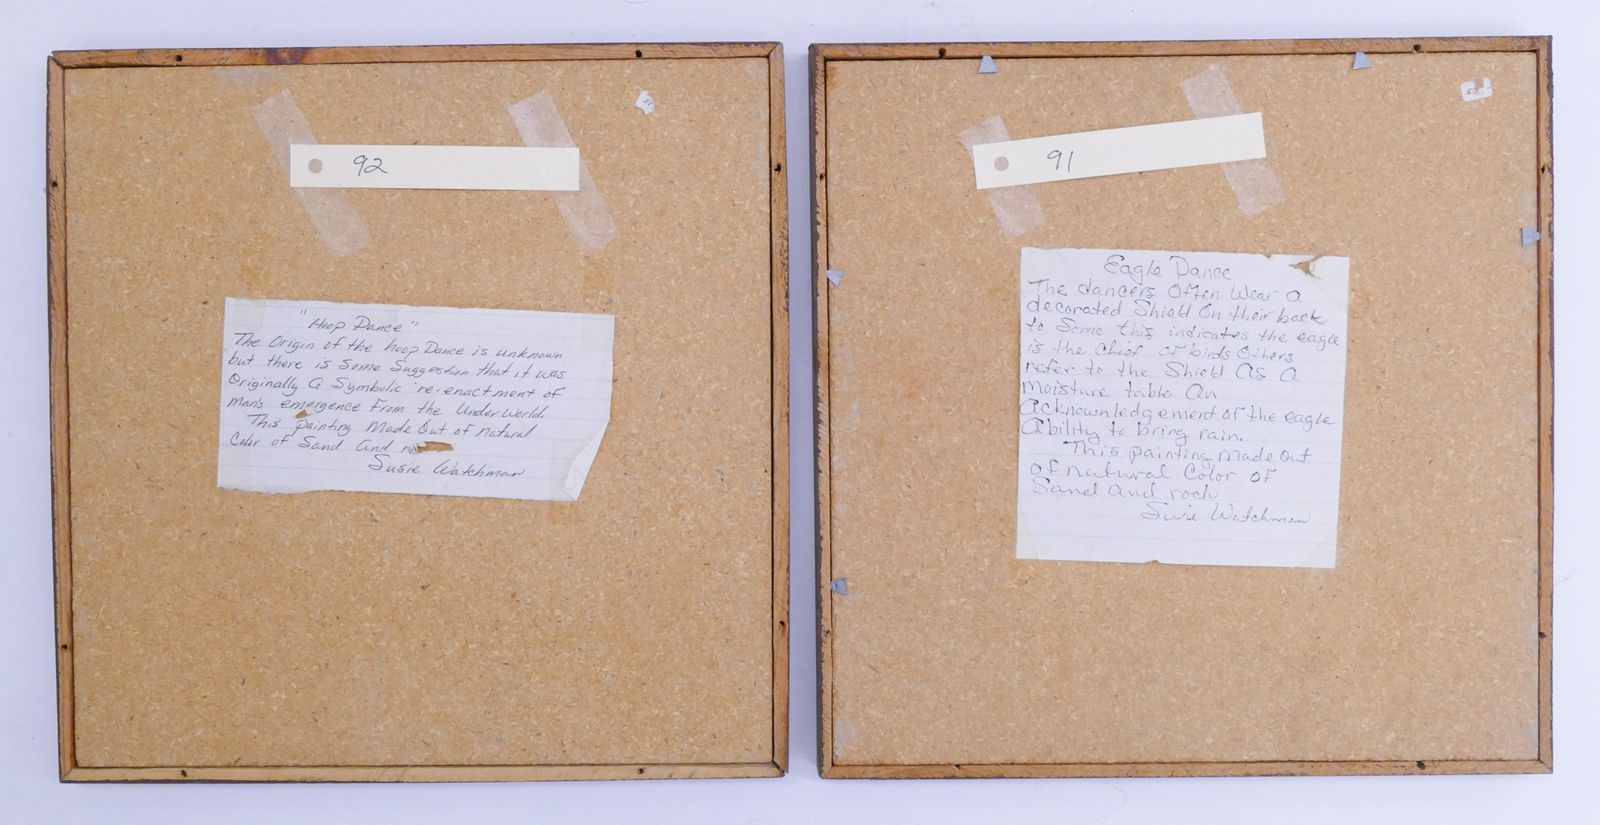 92
"Hoop Dance"
The Origin of the hoop Dance is unknown
but there is some Suggestion that it was
Originally a Symbolic re-enactment of
man's emergence From the Under World.
This painting Made Out of natural
Color of Sand and
Susie Watchman
91
Eagle Dance
The dancers Often Wear a
decorated Shield On their back
to Some this indicates the eagle
is the Chief of birds Others
refer to the Shield as a
Moisture table An
Acknownledgement of the eagle
Ability to bring rain.
This painting Made Out
of natural Color of
Sand and rock
Susie Watchman